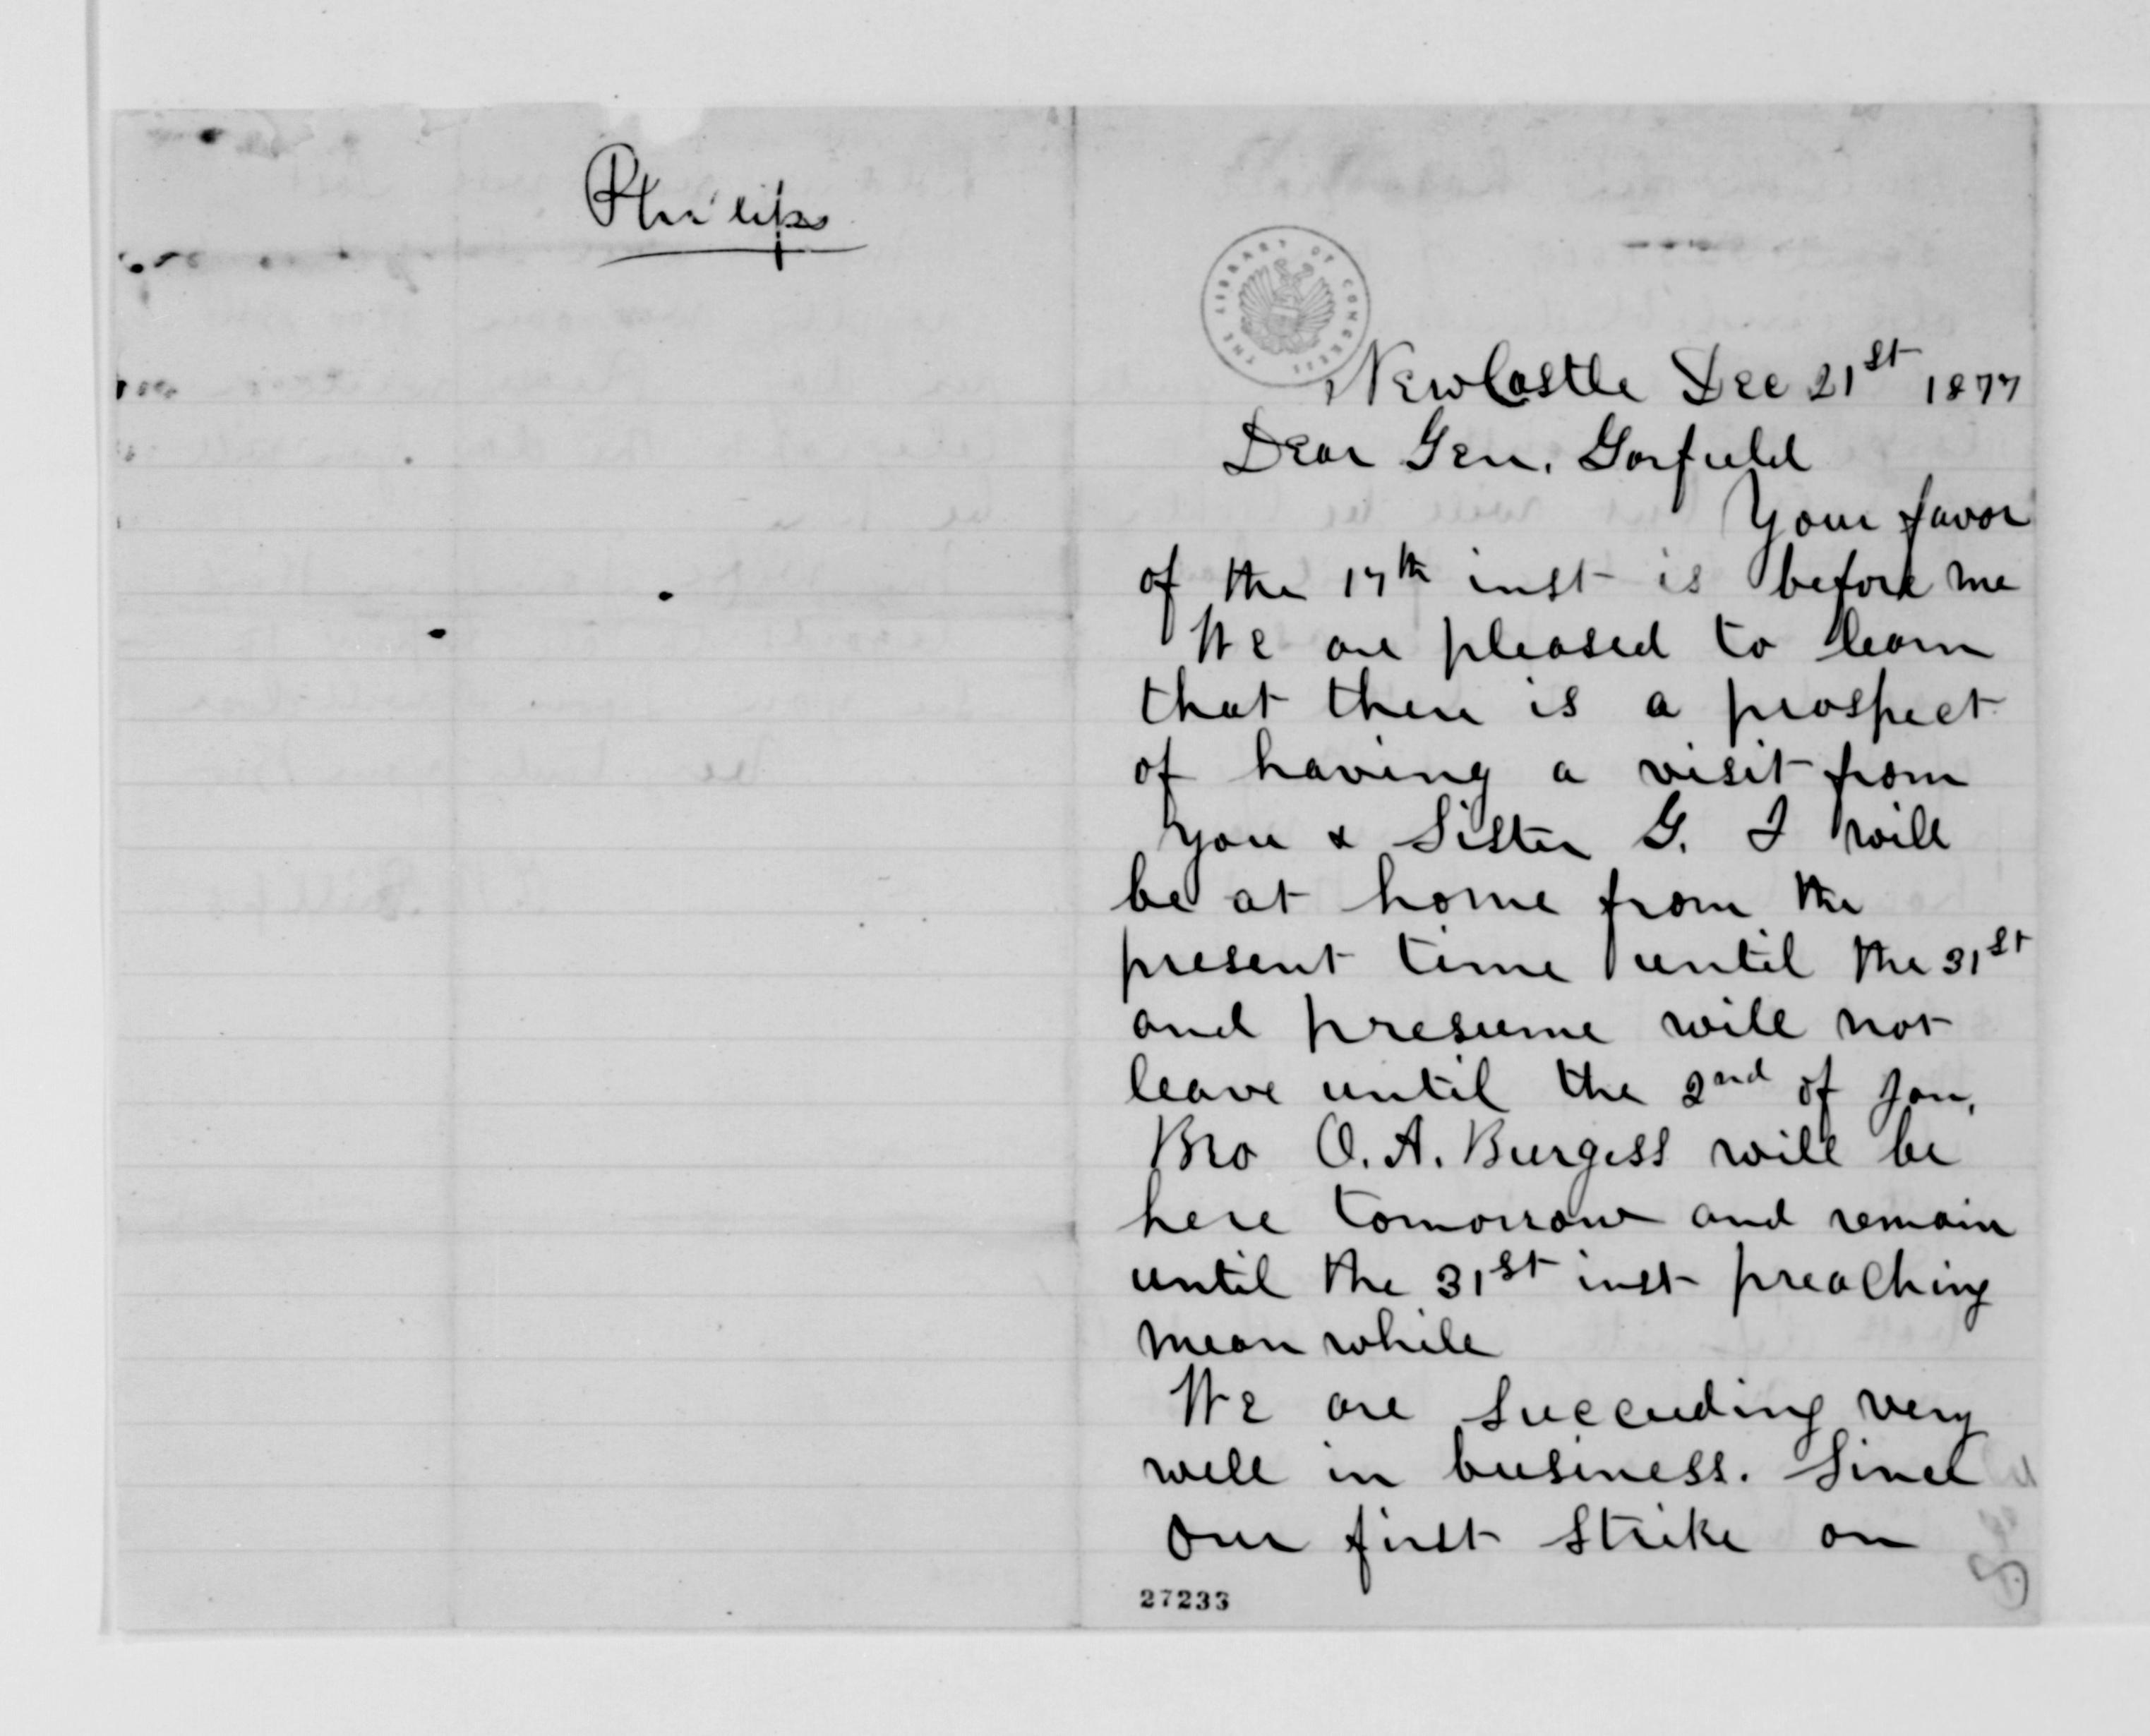 Phillips
THE LIBRARY OF CONGRESS
NewCastle Dec 21st 1877
Dear Gen. Garfield
Your favor
of the 17th inst is before me
We are pleased to learn
that there is a prospect
of having a visit from
you & Sister G. I will
be at home from the
present time until the 31st
and presume will not
leave until the 2nd of Jan,
Bro O. A. Burgess will be
here tomorrow and remain
until the 31st inst preaching
mean while
We are succeeding very
well in business. Since
our first strike on
27233